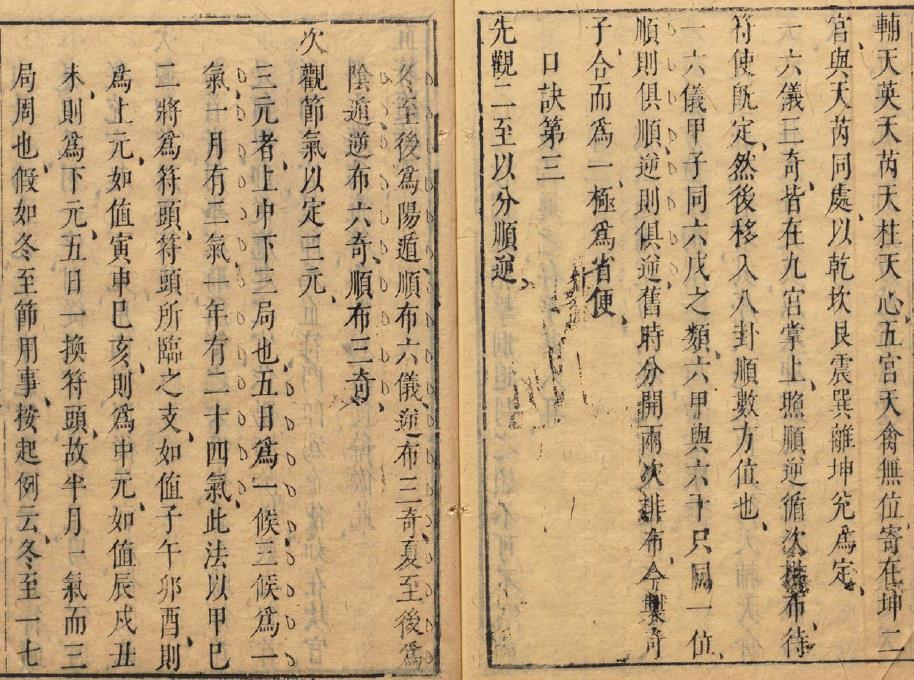 輔天英天芮天柱天心五宮天禽無位寄在坤二
宮與天芮同處以乾坎艮震巽離坤兌爲定
六儀三奇皆在九宮掌上照順逆循次排布待
符使旣定然後移入八卦順數方位也
六儀甲子同六戊之類六甲與六十只同一位
順則俱順逆則俱逆舊時分開兩次排布今製奇
子合而爲一極爲省便
口訣第三
先觀二至以分順逆
冬至後爲陽遁順布六儀逆布三奇夏至後爲
陰遁逆布六奇順布三奇
次觀節氣以定三元
三元者上中下三局也五日爲一候三候爲一
氣一月有二氣一年有二十四氣此法以甲巳
二將爲符頭符頭所臨之支如值子午夘酉則
爲上元如值寅申巳亥則爲中元如值辰戌丑
未則爲下元五日一換符頭故半月一氣而三
局周也假如冬至節用事按起例云冬至一七